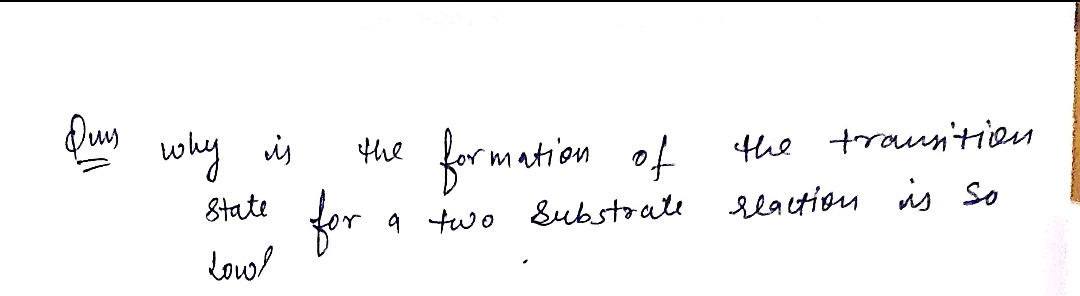 Ques why is the formation of the transition
state for a two substrate reaction is so
low?